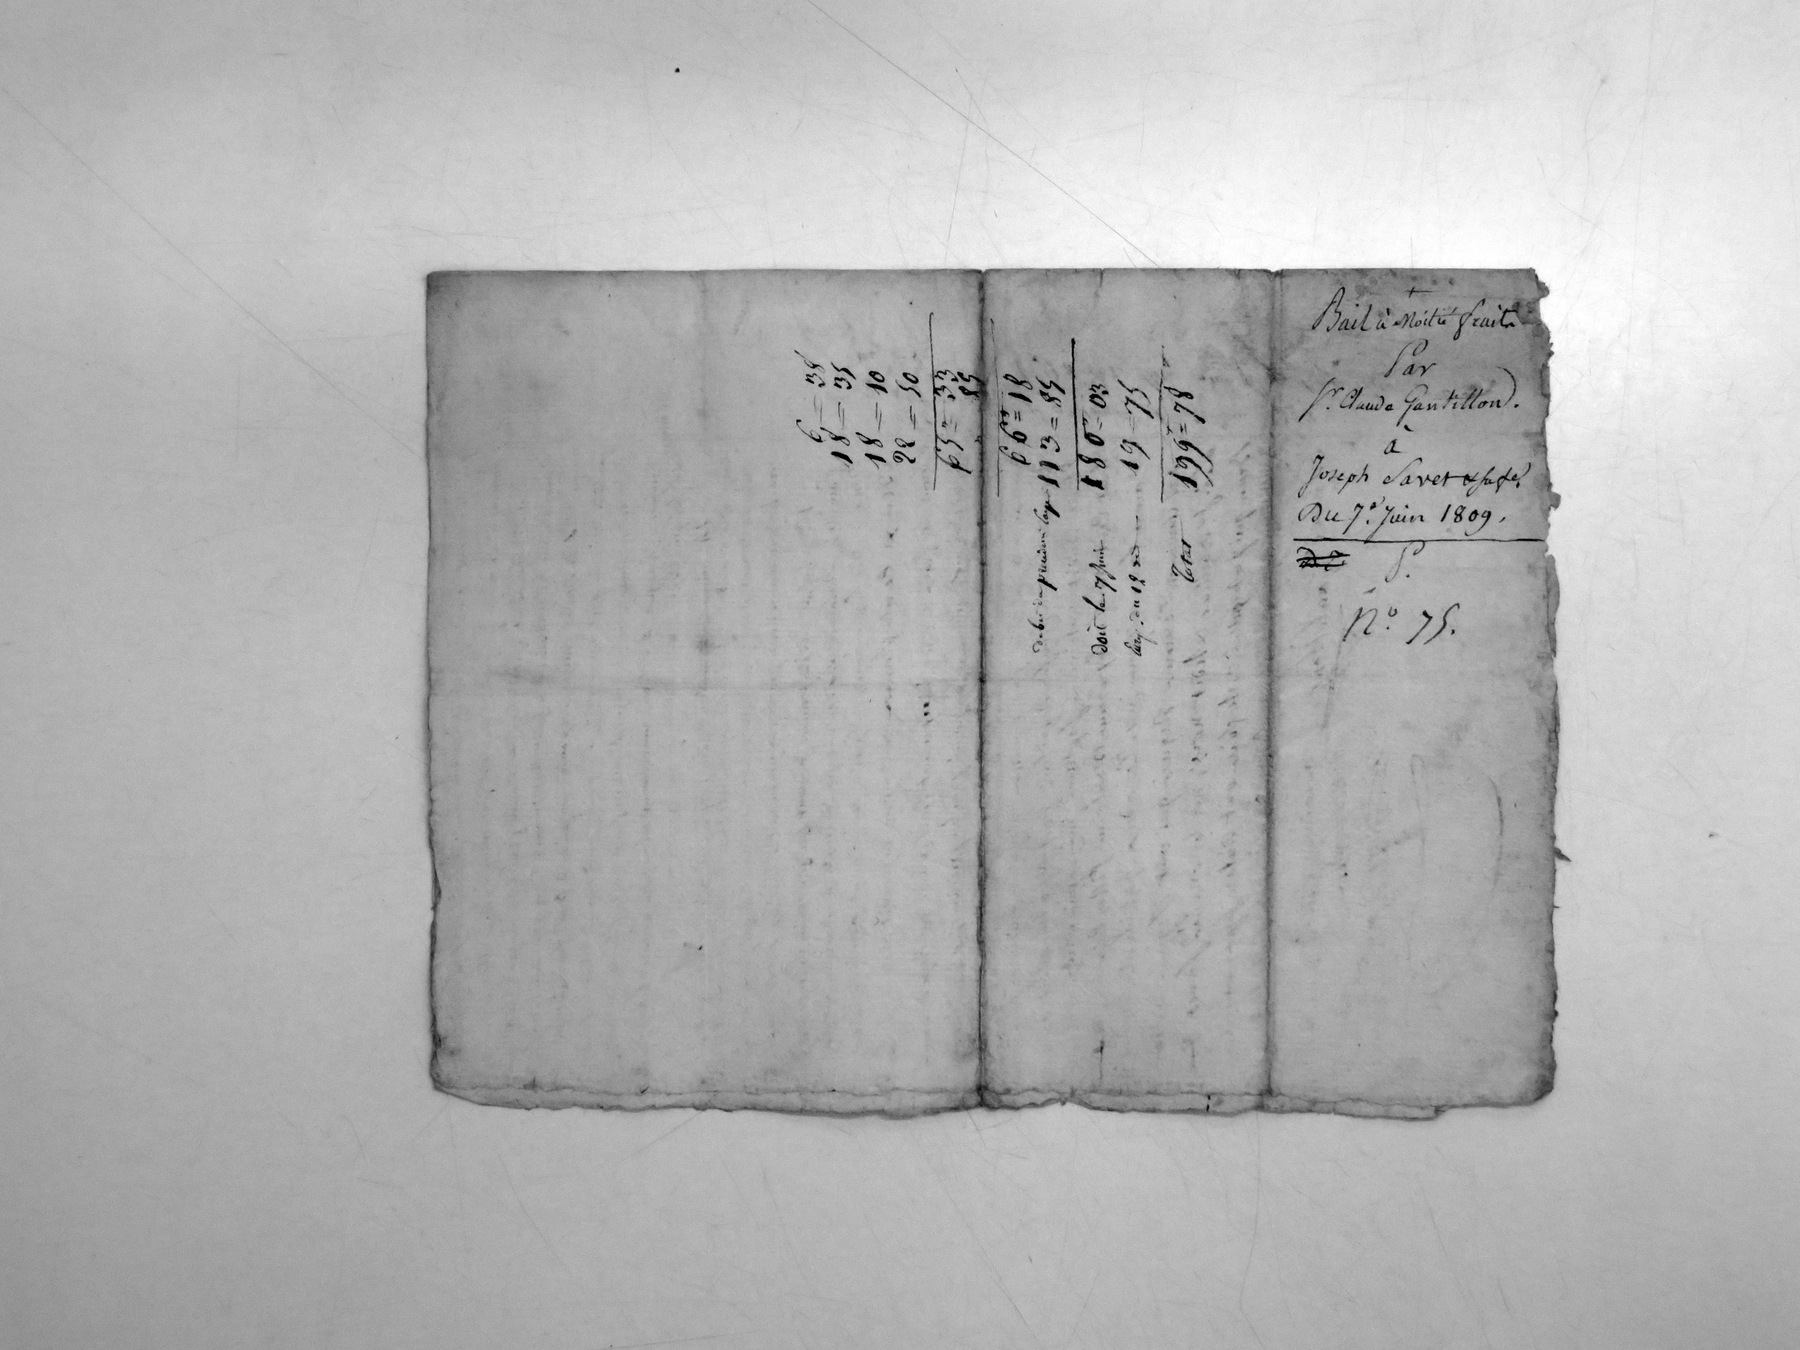 Bail à Moitié frait
Par
Sr. Claude Gantillon.
à
Joseph Savet & sa fe.
Du 7e. Juin 1809.
P.
No. 75.
6 = 38
18 = 35
18 = 10
22 = 50
65 = 33
85
66 = 18
113 = 85
180 = 03
doit le 7 juin
19 = 75
du 12
Total 199 = 78